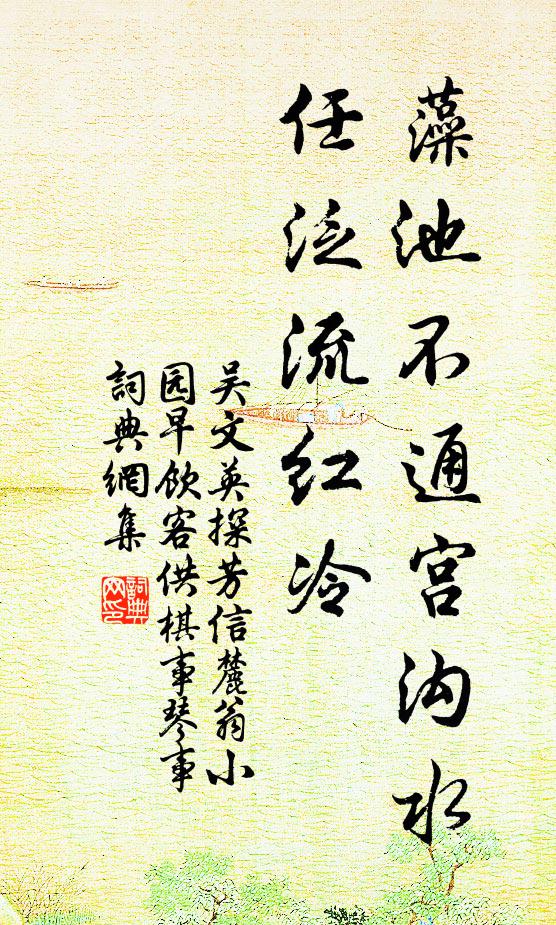 藻池不通宫沟水
任泛流红冷
吴文英探芳信麓翁小
园早饮客供棋事琴事
詞典網集
詞典
网印